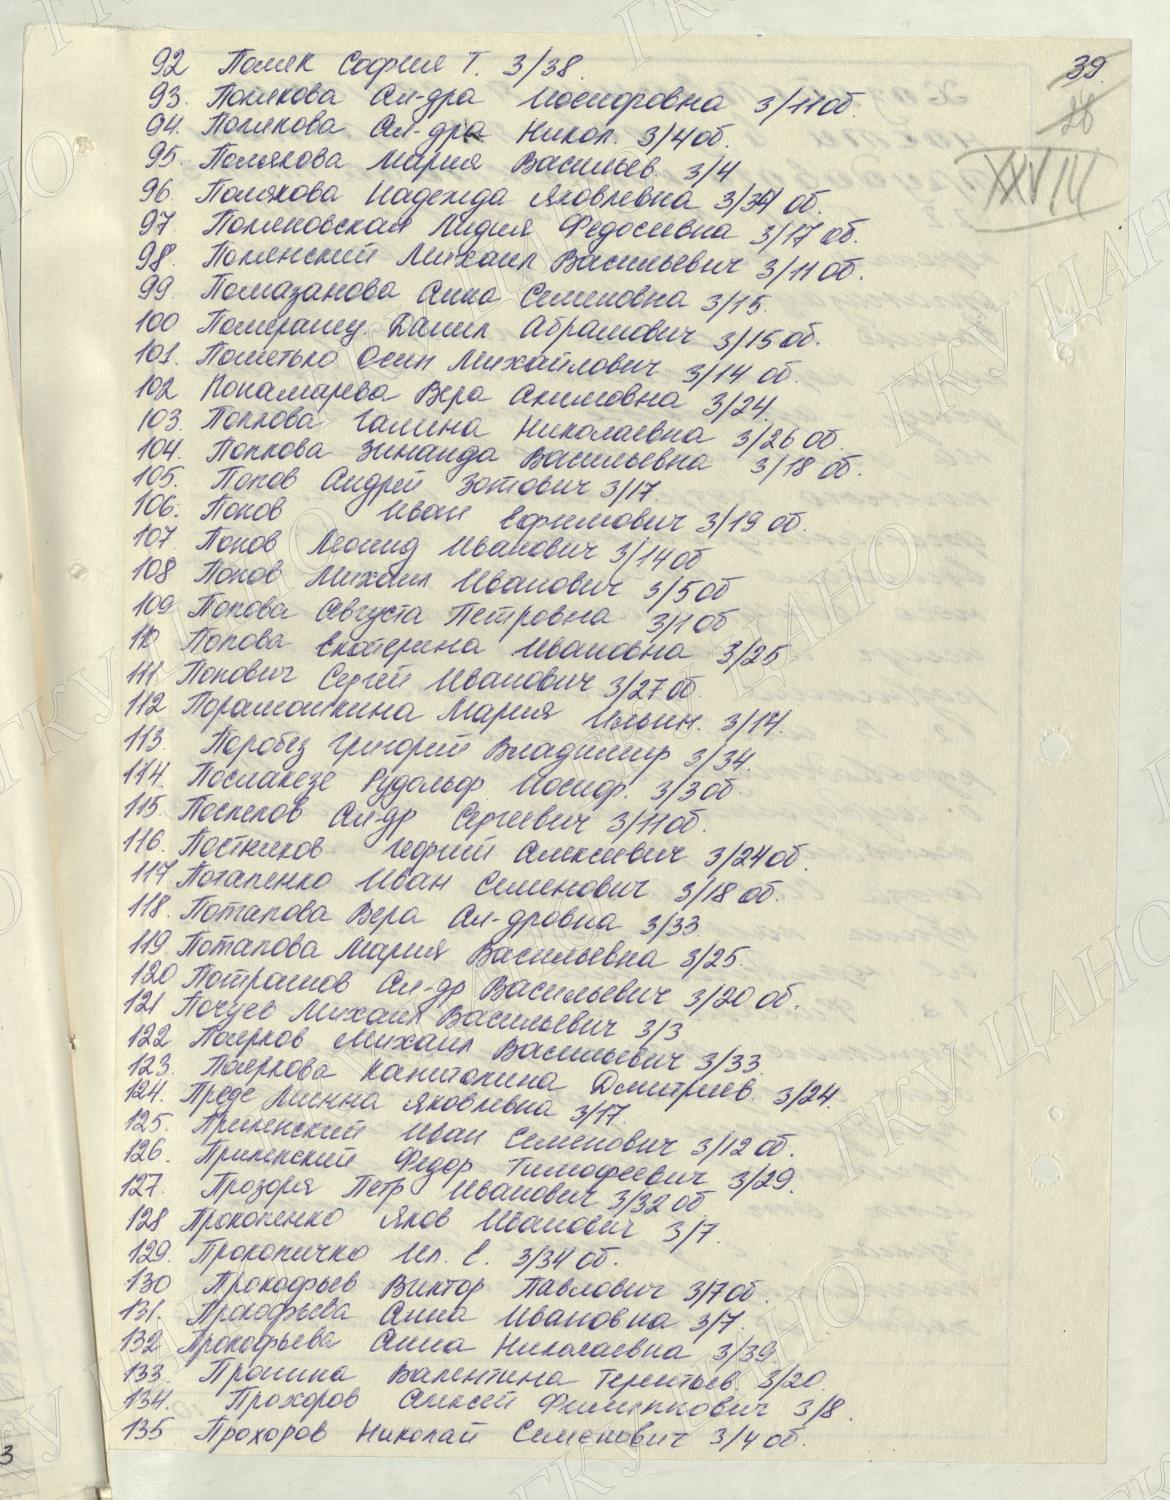 39.
28
XXVIII
92 Поляк София Т. 3/38.
93. Полякова Ал-дра Иосифовна 3/11 об.
94. Полякова Ал-дра Никол. 3/4 об.
95. Полякова Мария Васильев. 3/4
96. Полякова Надежда Яковлевна 3/34 об.
97. Поляковская Лидия Федосеевна 3/17 об.
98. Полянский Михаил Васильевич 3/11 об.
99. Помазанова Анна Семеновна 3/15.
100 Померанец Данил Абрамович 3/15 об.
101. Пометько Осип Михайлович 3/14 об.
102 Понамарева Вера Акимовна 3/24.
103. Попкова Галина Николаевна 3/26 об.
104. Попкова Зинаида Васильевна 3/18 об.
105. Попов Андрей Зотович 3/17.
106. Попов Иван Ефимович 3/19 об.
107. Попов Леонид Иванович 3/14 об
108 Попов Михаил Иванович 3/5 об
109. Попова Августа Петровна 3/1 об
110 Попова Екатерина Ивановна 3/25
111 Попович Сергей Иванович 3/27 об.
112 Порамошкина Мария Ильин. 3/14.
113. Поробез Григорий Владимир 3/34.
114. Рудольф Иосиф. 3/3 об.
115. Поспелов Ал-др Сергеевич 3/11 об.
116. Постников Алексеевич 3/24 об.
117 Потапенко Иван Семенович 3/18 об.
118. Потапова Вера Ал-дровна 3/33
119. Потапова Мария Васильевна 3/25.
120 Потрашов Ал-др Васильевич 3/20 об.
121 Почуев Михаил Васильевич 3/3
122 Михаил Васильевич 3/33.
123. Капитолина Дмитриев. 3/24.
124. Преде Яковлевна 3/17.
125. Прилепский Иван Семенович 3/12 об.
126. Прилепский Федор Тимофеевич 3/29.
127. Прозоря Петр Иванович 3/32 об
128 Прокопенко Яков Иванович 3/7.
129. Прокопичко Ил. Е. 3/34 об.
130 Прокофьев Виктор Павлович 3/7 об.
131. Прокофьева Анна Ивановна 3/7.
132 Прокофьева Анна Николаевна 3/39
133. Пронина Валентина Терентьев 3/20.
134. Прохоров Алексей Филиппович 3/8.
135 Прохоров Николай Семенович 3/4 об.
3
ГКУ ЦАНО